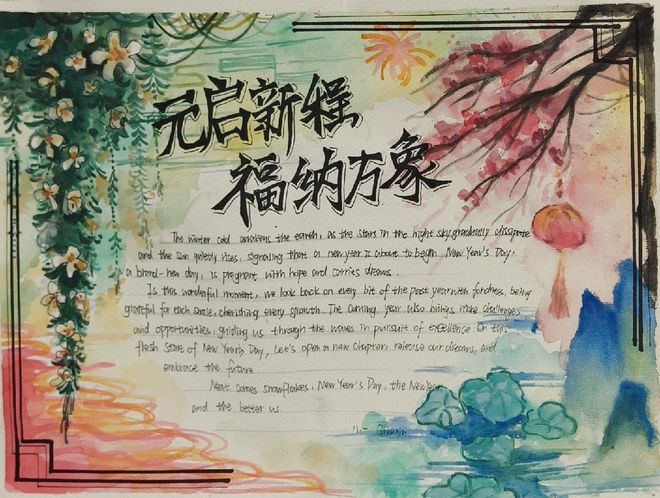 元启新程
福纳万象
The winter cold awakens the earth, as the stars in the night sky gradually dissipate
and the sun quietly rises, signaling that a new year is about to begin. New Year's Day,
a brand-new day, is pregnant with hope and carries dreams.
In this wonderful moment, we look back on every bit of the past year with fondness, being
grateful for each smile, cherishing every growth. The coming year also brings more challenges
and opportunities, guiding us through the waves in pursuit of excellence. On this
fresh start of New Year's Day, Let's open a new chapter, release our dreams, and
embrace the future.
Next comes snowflakes, New Year's Day, the New Year
and the better us.